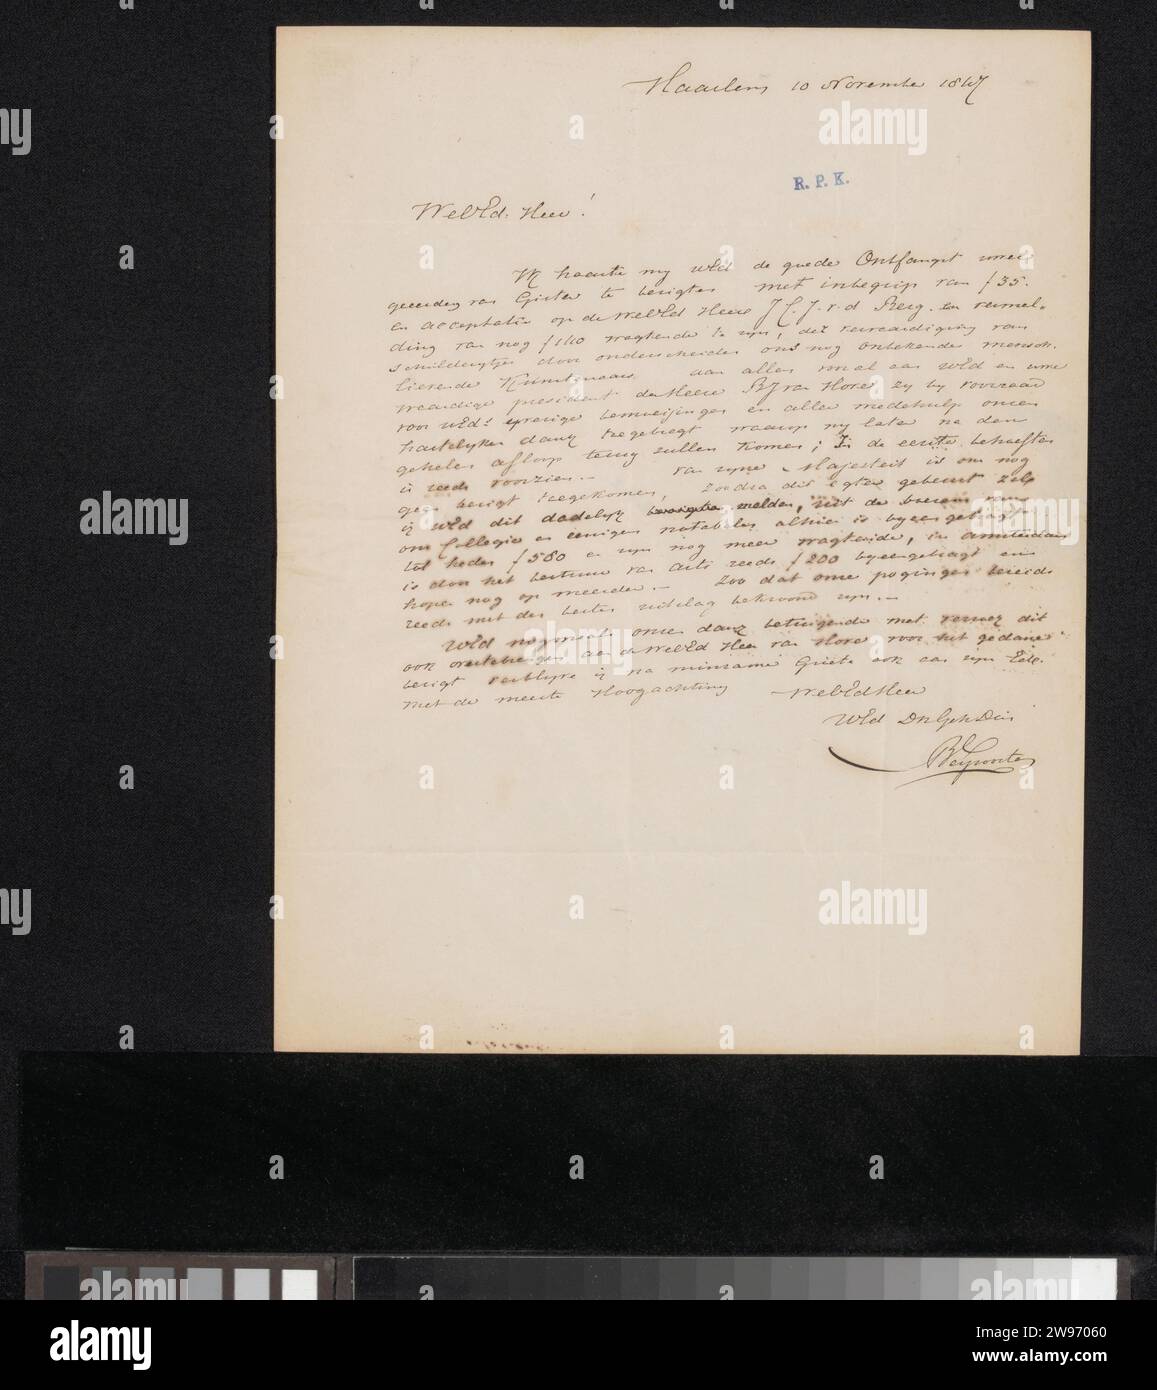 Haarlem 10 November 1847
R. P. K.
WelEd. Heer!
Ik haaste my WEd de goede Ontfangst uwer
geeerden van Gister te berigten met inbegrip van f 35.
en acceptatie op de WelEd Heer J. C. J. v. d Berg. en vermel-
ding van nog f 110 wagtende te zyn, der vervaardiging van
schilderytjes door onderscheiden ons nog onbekende mensch-
lievende Kunstenaars aan allen vooral aan WEd en uwe
waardige president de Heere van Hove zy by voorraad
voor WEds yverige bemoeijingen en aller medehulp onzen
hartelyken dank toegebragt waarop wy later na den
geheelen afloop terug zullen komen; In de eerste behoeften
is reeds voorzien.- van zyne Majesteit is ons nog
geen berigt toegekomen, zoodra dit egter gebeurt zal
ik WEd dit dadelyk melden, uit de boezem van
ons Collegie en eenigen notabelen alhier is byeengebragt
tot heden f 580 en zyn nog meer wagtende, in Amsterdam
is door het bestuur van Arti reeds f 200 byeengebragt en
hopen nog op meerder.- Zoo dat onze pogingen bereids
reeds met den besten uitslag bekroond zyn.-
WEd nogmaals onzen dank betuigende met verzoek dit
ook overtebrengen aan de WelEd Heer van Hove voor het gedane
berigt verblyve ik na minzame Groete ook aan zyn Ede.
met de meeste Hoogachting WelEd Heer
WEd
alamy
Image ID: 2W97060
www.alamy.com